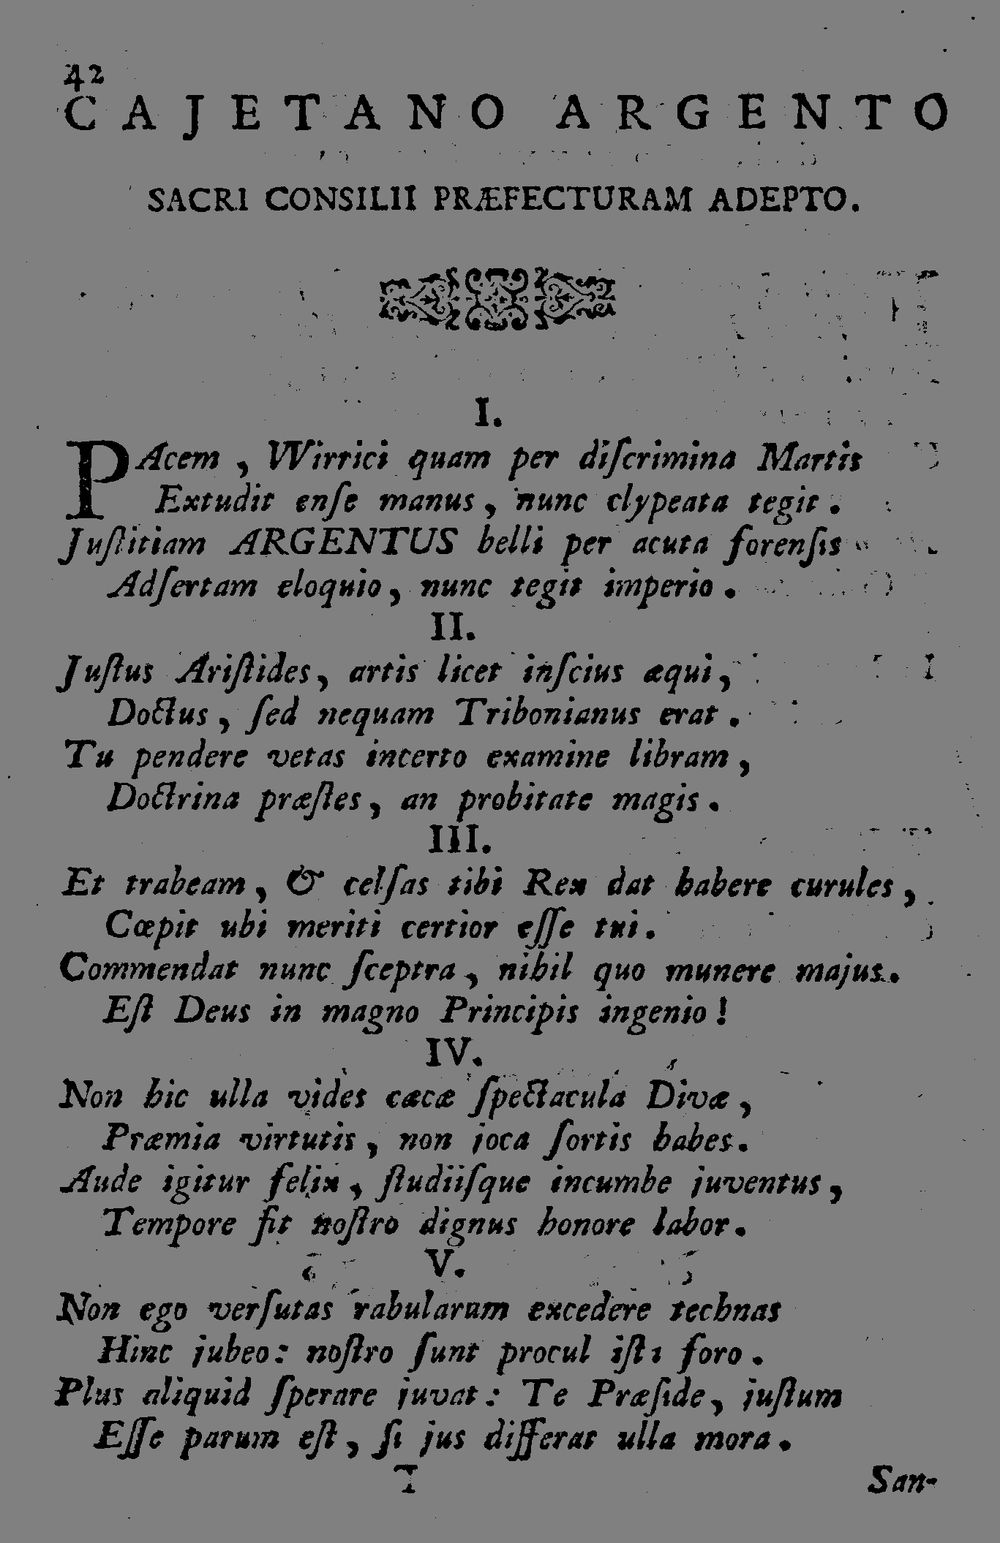 42
CAJETANO ARGENTO
SACRI CONSILII PRÆFECTURAM ADEPTO.
I.
PAcem, Wirrici quam per diſcrimina Martis
Extudit enſe manus, nunc clypeata tegit.
Juſtitiam ARGENTUS belli per acuta forenſis
Adſertam eloquio, nunc tegit imperio.
II.
Juſtus Ariſtides, artis licet inſcius æqui,
Doctus, ſed nequam Tribonianus erat.
Tu pendere vetas incerto examine libram,
Doctrina præſtes, an probitate magis.
III.
Et trabeam, & celſas tibi Rex dat habere curules,
Cœpit ubi meriti certior eſſe tui.
Commendat nunc ſceptra, nihil quo munere majus.
Eſt Deus in magno Principis ingenio!
IV.
Non hic ulla vides cæcæ ſpectacula Divæ,
Præmia virtutis, non joca ſortis habes.
Aude igitur felix, ſtudiiſque incumbe juventus,
Tempore fit noſtro dignus honore labor.
V.
Non ego verſutas rabularum excedere technas
Hinc jubeo: noſtro ſunt procul iſti foro.
Plus aliquid ſperare juvat: Te Præſide, juſtum
Eſſe parum eſt, ſi jus differat ulla mora.
San-